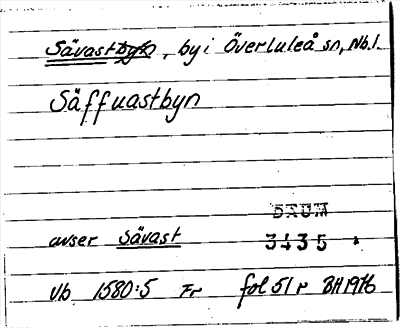 Sävastbyn, by i Överluleå sn, Nb.l.
Säffuastbyn
DAUM
avser Sävast 3435
Vb 1580:5 Fr fol 51 r BH 1976